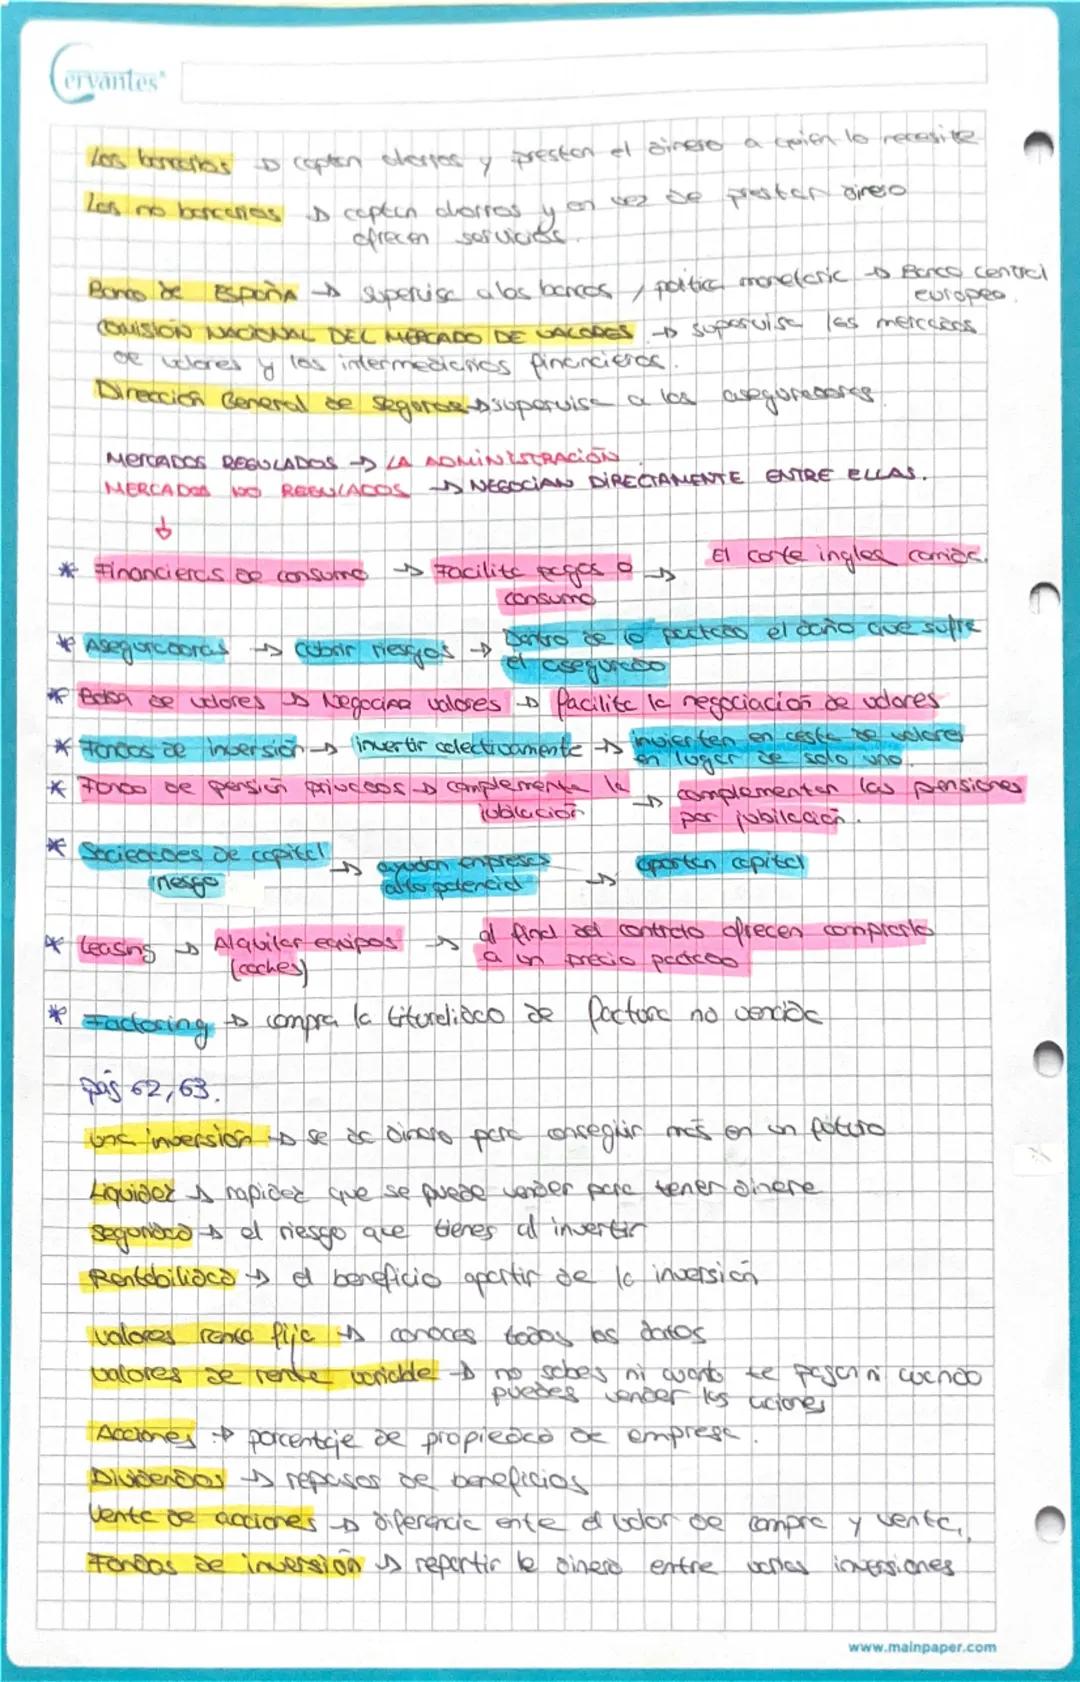 Cervantes
Los bancarios → captan ahorros y prestan el dinero a quien lo necesite
Los no bancarios → captan ahorros y en vez de prestar dinero
ofrecen servicios.
Banco de España → supervisa a los bancos / política monetaria → Banco central
europeo.
COMISIÓN NACIONAL DEL MERCADO DE VALORES → supervisa los mercados
de valores y los intermediarios financieros.
Dirección General de Seguros → supervisa a los aseguradores
MERCADOS REGULADOS → LA ADMINISTRACIÓN
MERCADOS NO REGULADOS → NEGOCIAN DIRECTAMENTE ENTRE ELLAS.
↓
* Financieras de consumo → Facilita pagos a → El corte ingles
consumo
* Aseguradoras → cubrir riesgos → Dentro de lo pactado el daño que sufre
el asegurado
* Bolsa de valores → Negocian valores → facilita la negociación de valores
* Fondos de inversión → invertir colectivamente → invierten en cesta de valores
en lugar de solo uno.
* Fondo de pensión privados → complementa la → complementan las pensiones
jubilación por jubilación.
* Sociedades de capital → ayudan empresas → aportan capital
riesgo alto potencial
* Leasing → Alquilar equipos → al final del contrato ofrecen comprarlo
(coches) a un precio pactado
* Factoring → compra la titularidad de factura no vencida
pág 62, 63.
una inversión → se da dinero para conseguir más en un futuro
Liquidez → rapidez que se puede vender para tener dinero
Seguridad → el riesgo que tienes al invertir
Rentabilidad → el beneficio apartir de la inversión
valores renta fija → conoces todos los datos
valores de renta variable → no sabes ni cuanto te pagan ni cuando
puedes vender las aciones
Acciones → porcentaje de propiedad de empresa.
Dividendos → repasos de beneficios
Venta de acciones → diferencia ente el valor de compra y venta.
Fondos de inversión → repartir le dinero entre varias inversiones
www.mainpaper.com